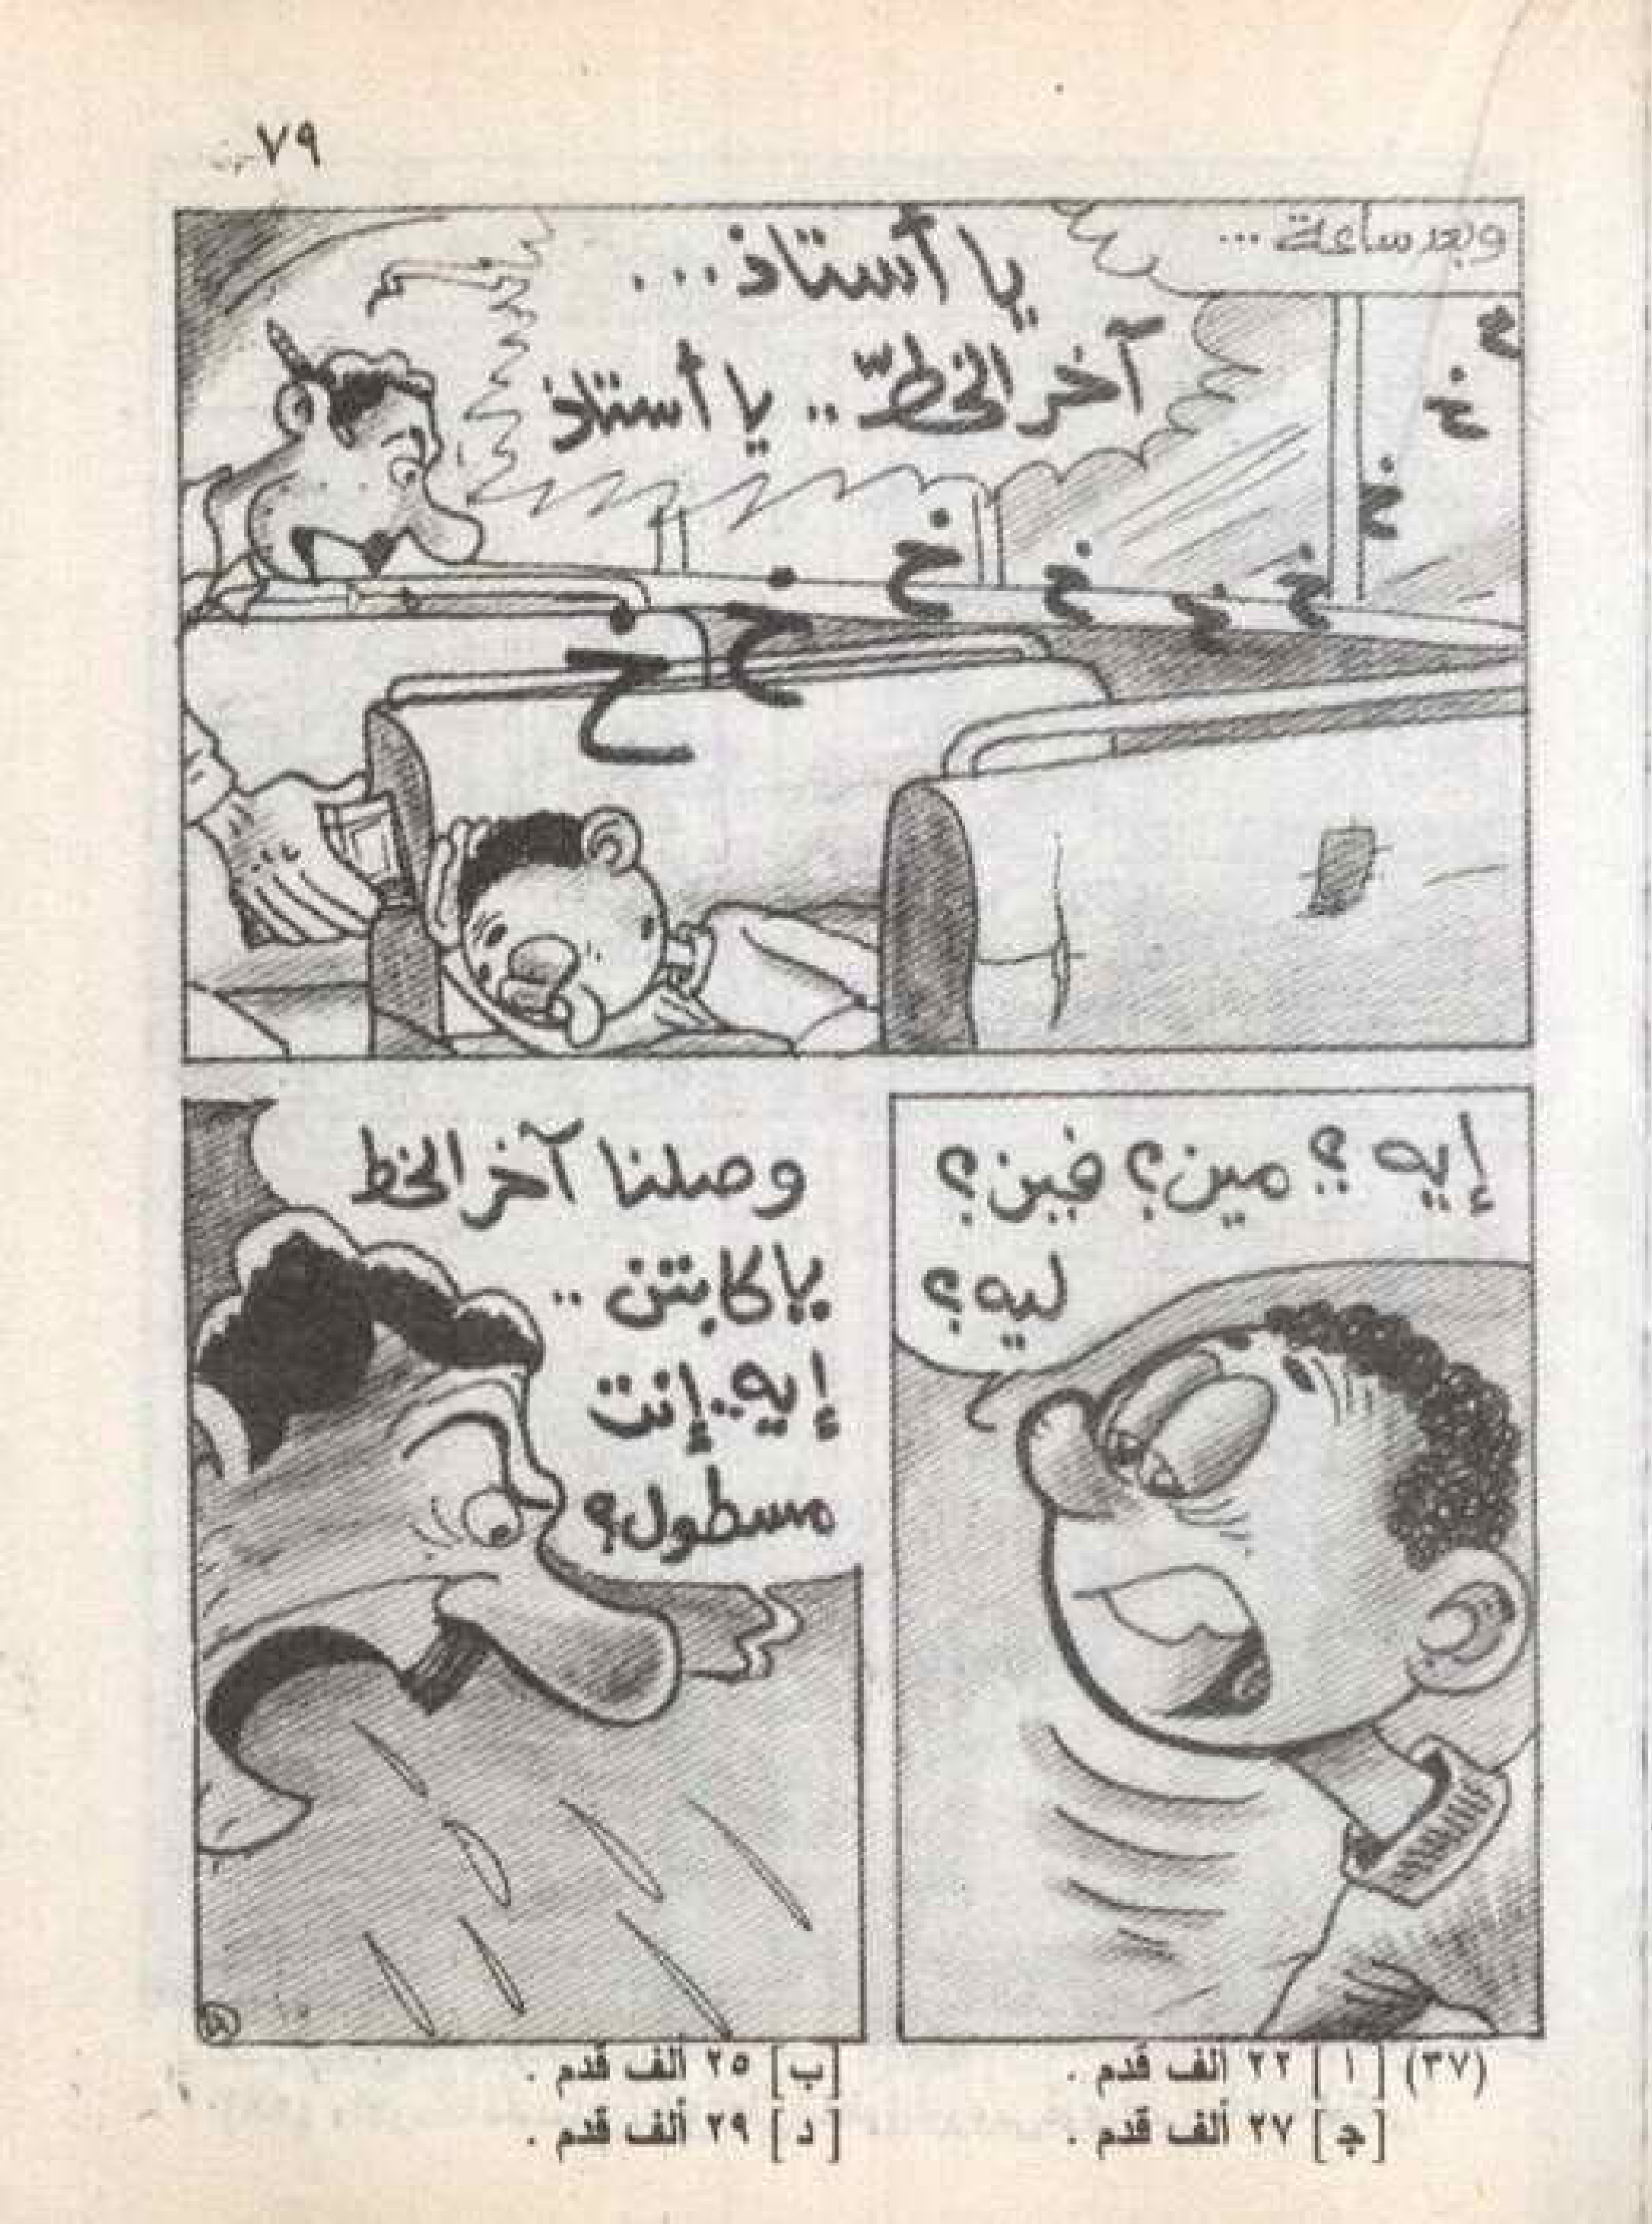 ٧٩
وبعد ساعة ...
يا أستاذ ...
آخر الخطّ .. يا أستاذ
خ
خ
خ
خ
خ
خ
خ
خ
خ
إيه ؟؟ مين؟ فين؟
ليه؟
وصلنا آخر الخط
يا كابتن ..
إيه .. إنت
مسطول؟
(٣٧) [ أ ] ٢٢ ألف قدم .
[ب] ٢٥ ألف قدم .
[ج] ٢٧ ألف قدم .
[د] ٢٩ ألف قدم .